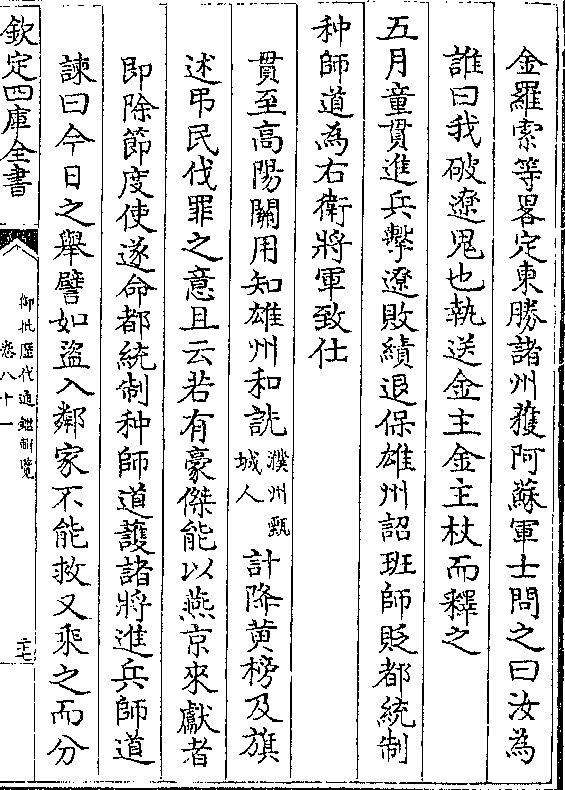 金羅索等畧定東勝諸州獲阿蘇軍士問之曰汝為
誰曰我破遼鬼也執送金主金主杖而釋之
五月童貫進兵擊遼敗績退保雄州詔班師貶都統制
种師道為右衛將軍致仕
貫至高陽關用知雄州和詵濮州甄城人計降黄榜及旗
述弔民伐罪之意且云若有豪傑能以燕京來獻者
即除節度使遂命都統制种師道護諸將進兵師道
諫曰今日之舉譬如盜入鄰家不能救又乘之而分
欽定四庫全書
御批歷代通鑑輯覽
卷八十一
二十七